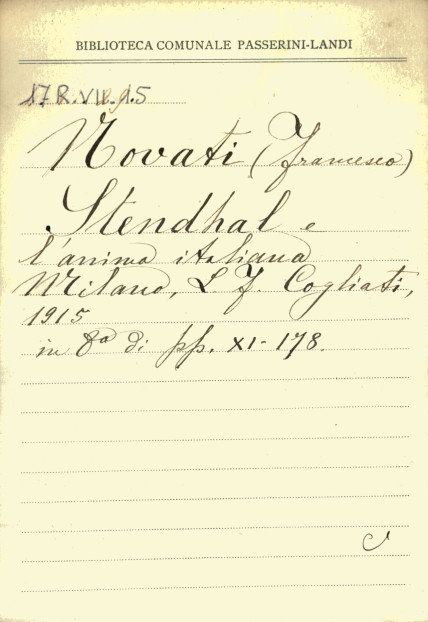 BIBLIOTECA COMUNALE PASSERINI-LANDI
17 R.VII.
Novati (Francesco)
Stendhal e
l'anima italiana
Milano, L F. Cogliati,
1915
in 8º di pp. XI-178.